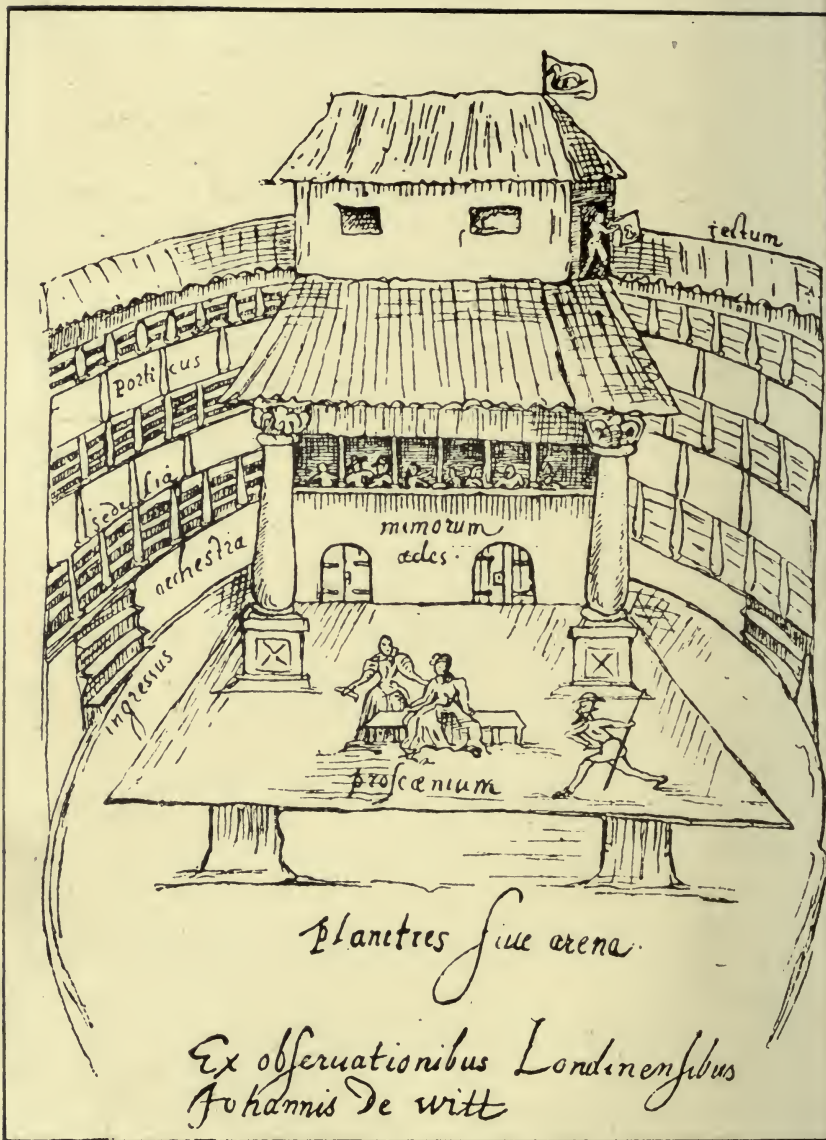 tectum
porticus
sedilia
orchestra
mimorum
ædes.
ingressus
proscænium
planities siue arena.
Ex obſeruationibus Londinenſibus
Johannis De witt